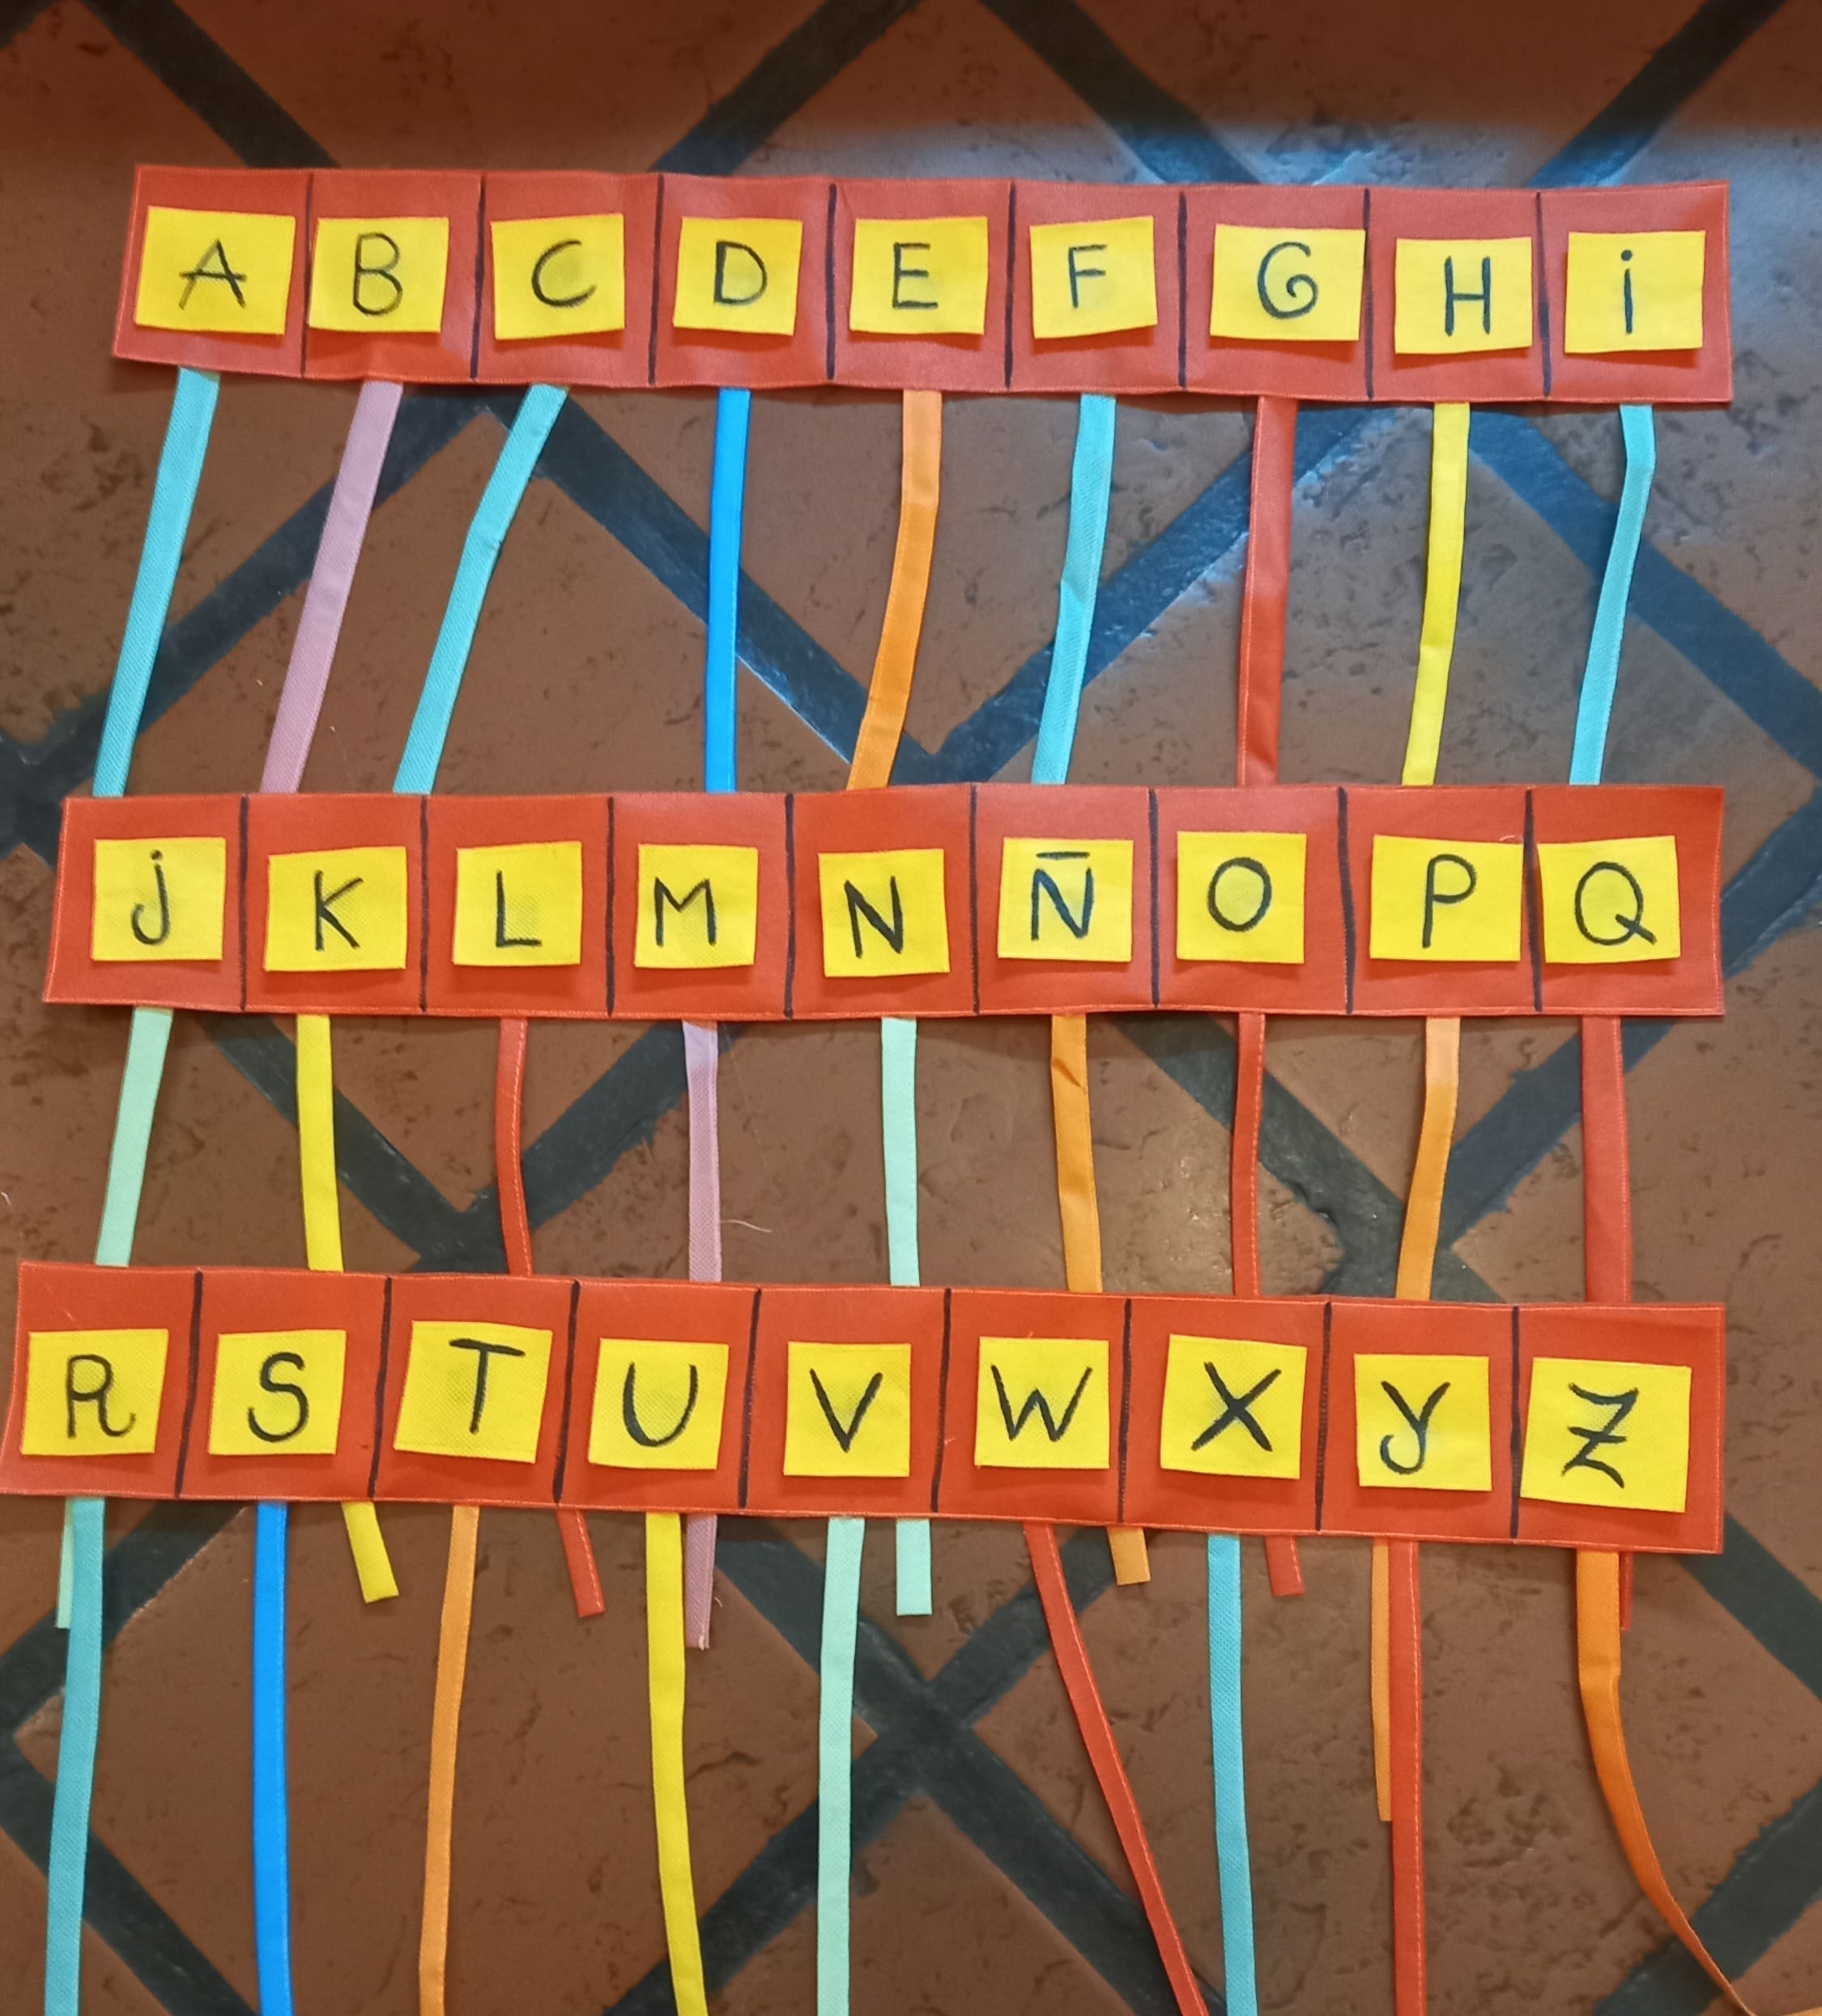 A B C D E F G H i
j K L M N Ñ O P Q
R S T U V W X Y Z